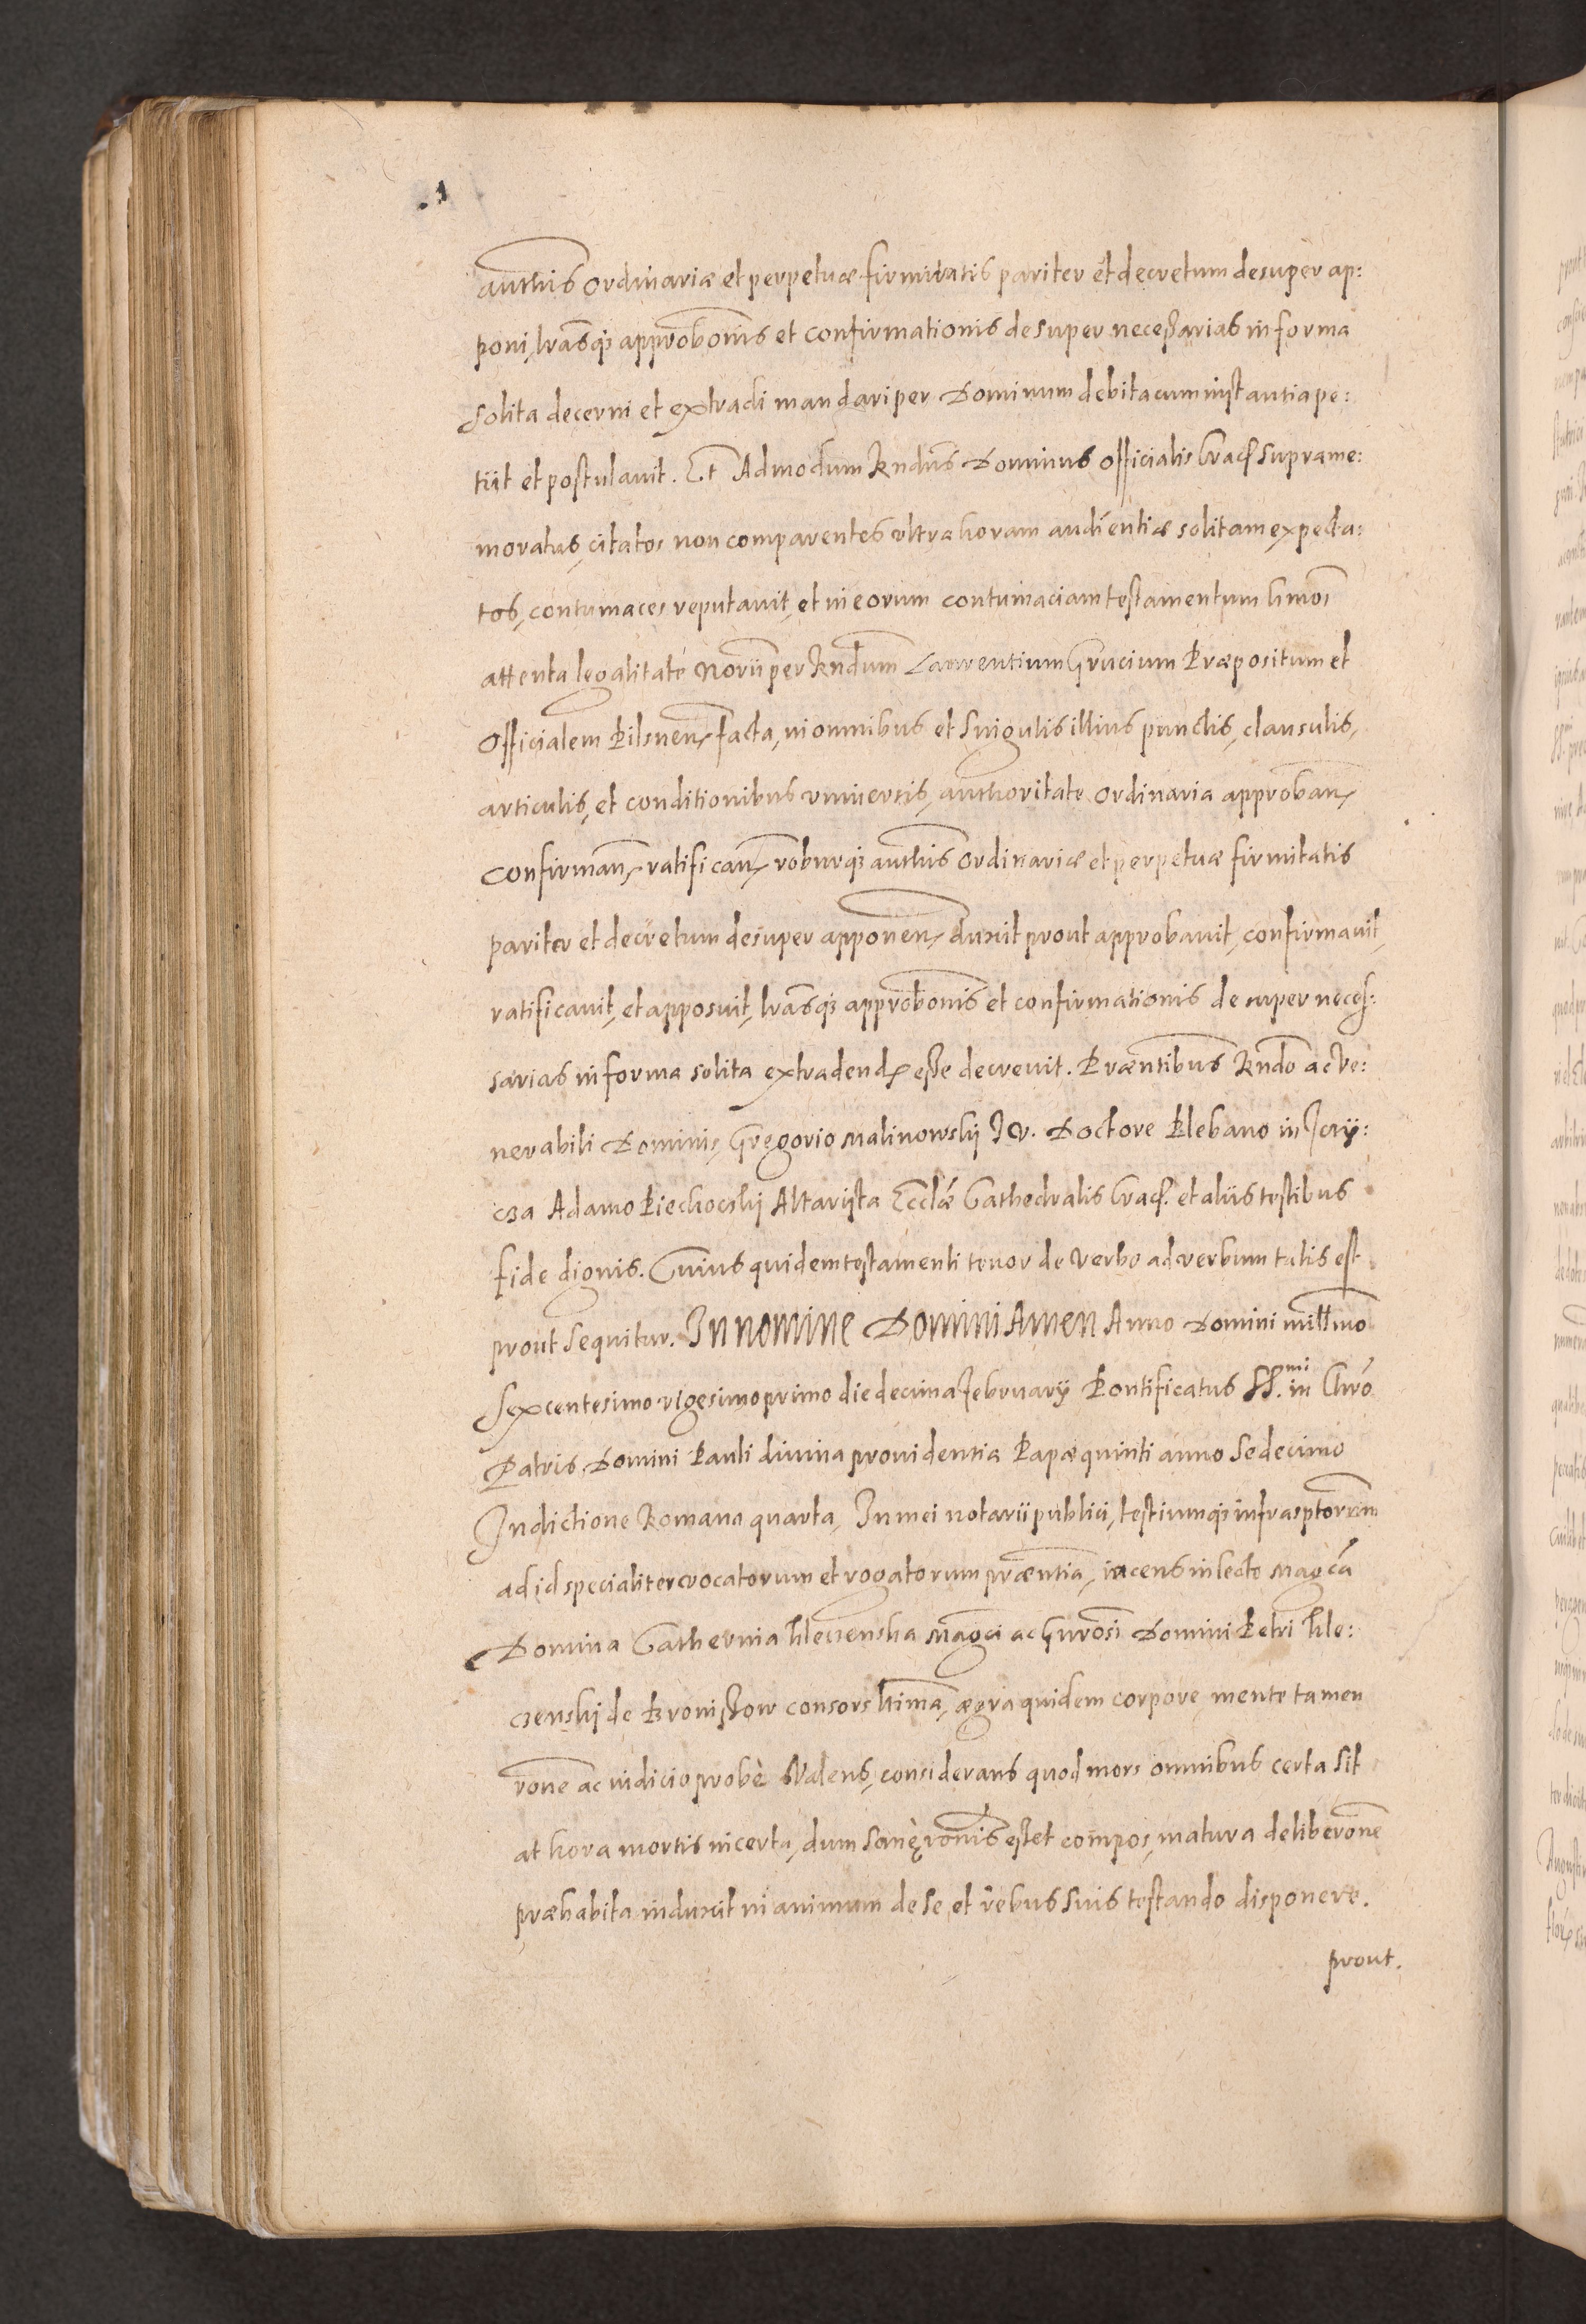 authis ordinariæ et perpetuæ firmitatis pariter et decretum desuper ap:
poni, lrasq3 approbonis et confirmationis desuper neceßarias in forma
solita decerni et extradi mandari per Dominum debita cum instantia pe:
tiit et postulavit. Et Admodum Rndus Dominus Officialis Crac. supra me:
moratus, citatos non comparentes ultra horam audientiæ solitam expecta:
tos, contumaces reputavit, et in eorum contumaciam testamentum hmoi
attenta legalitate per Rndum Laurentium Præpositum et
Officialem Pilsnen. facta, in omnibus et singulis illius punctis, clausulis,
articulis, et conditionibus universis, authoritate ordinaria approban.
confirman. ratifican. roburq3 authis ordinariæ et perpetuæ firmitatis
pariter et decretum desuper apponen. duxit prout approbavit, confirmavit,
ratificavit, et apposuit, lrasq3 approbonis et confirmationis desuper neces:
sarias in forma solita extradend. eße decrevit. Præntibus Rndo ac Ve:
nerabili Dominis, Gregorio Malinowskij I.V. Doctore Plebano in
cza Adamo Piechockij Altarista Eccłæ Cathedralis Crac. et aliis testibus
fide dignis. Cuius quidem testamenti tenor de verbo ad verbum talis est
prout sequitur. In nomine Domini Amen Anno Domini millmo
Sexcentesimo vigesimo primo die decima Februarij Pontificatus SS.mi in Chro
Patris Domini Pauli divina providentia Papæ quinti anno sedecimo
Indictione Romana quarta, In mei notarii publici, testiumq3 infrasptorum
ad id specialiter vocatorum et rogatorum præntia, iacens in lecto Magca
Domina Catherina Magci ac Gnrosi Domini Petri Hle:
czenskij de Broniszow consors ltima, ægra quidem corpore mente tamen
rone ac iudicio probè valens, considerans quod mors omnibus certa sit
at hora mortis incerta, dum sanę ronis eßet compos, matura deliberone
præhabita induxit in animum de se, et rebus suis testando disponere.
prout.